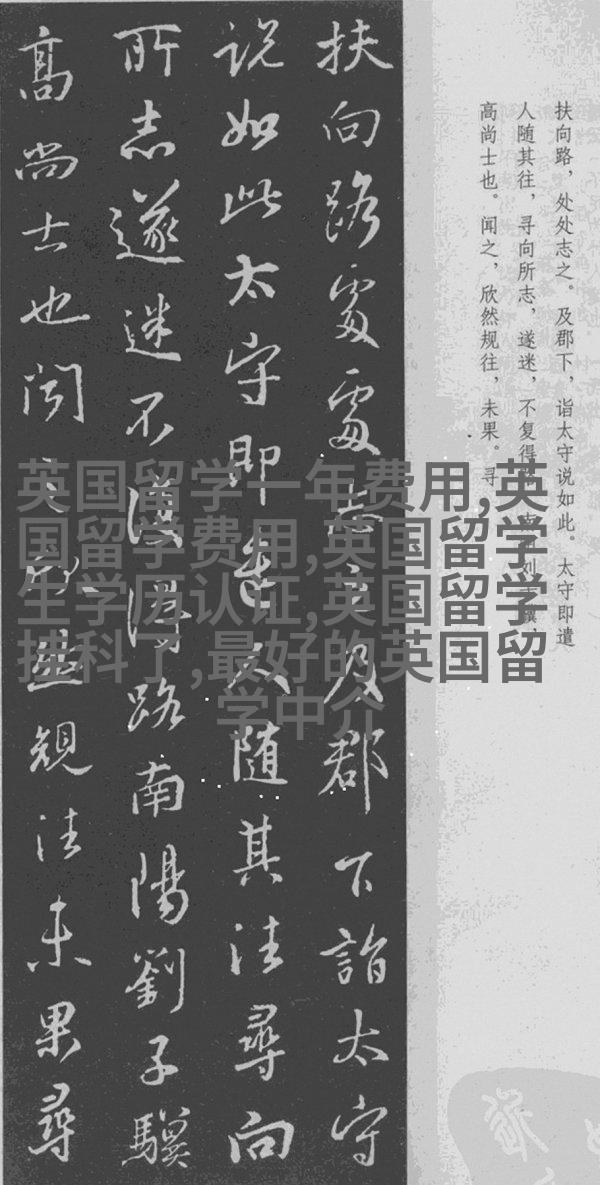 扶向路，处处志之。及郡下，诣太守说如此。太守即遣
人随其往，寻向所志，遂迷，不复得
高尚士也。闻之，欣然规往，未果。寻
扶向路處處志之及郡下詣太守
説如此太守即遣人随其往尋向
所志遂迷不復得路南陽劉子驥
高尚士也聞之欣然規往未果尋
英国留学一年费用,英
国留学费用,英国留学
生学历认证,英国留学
挂科了,最好的英国留
学中介